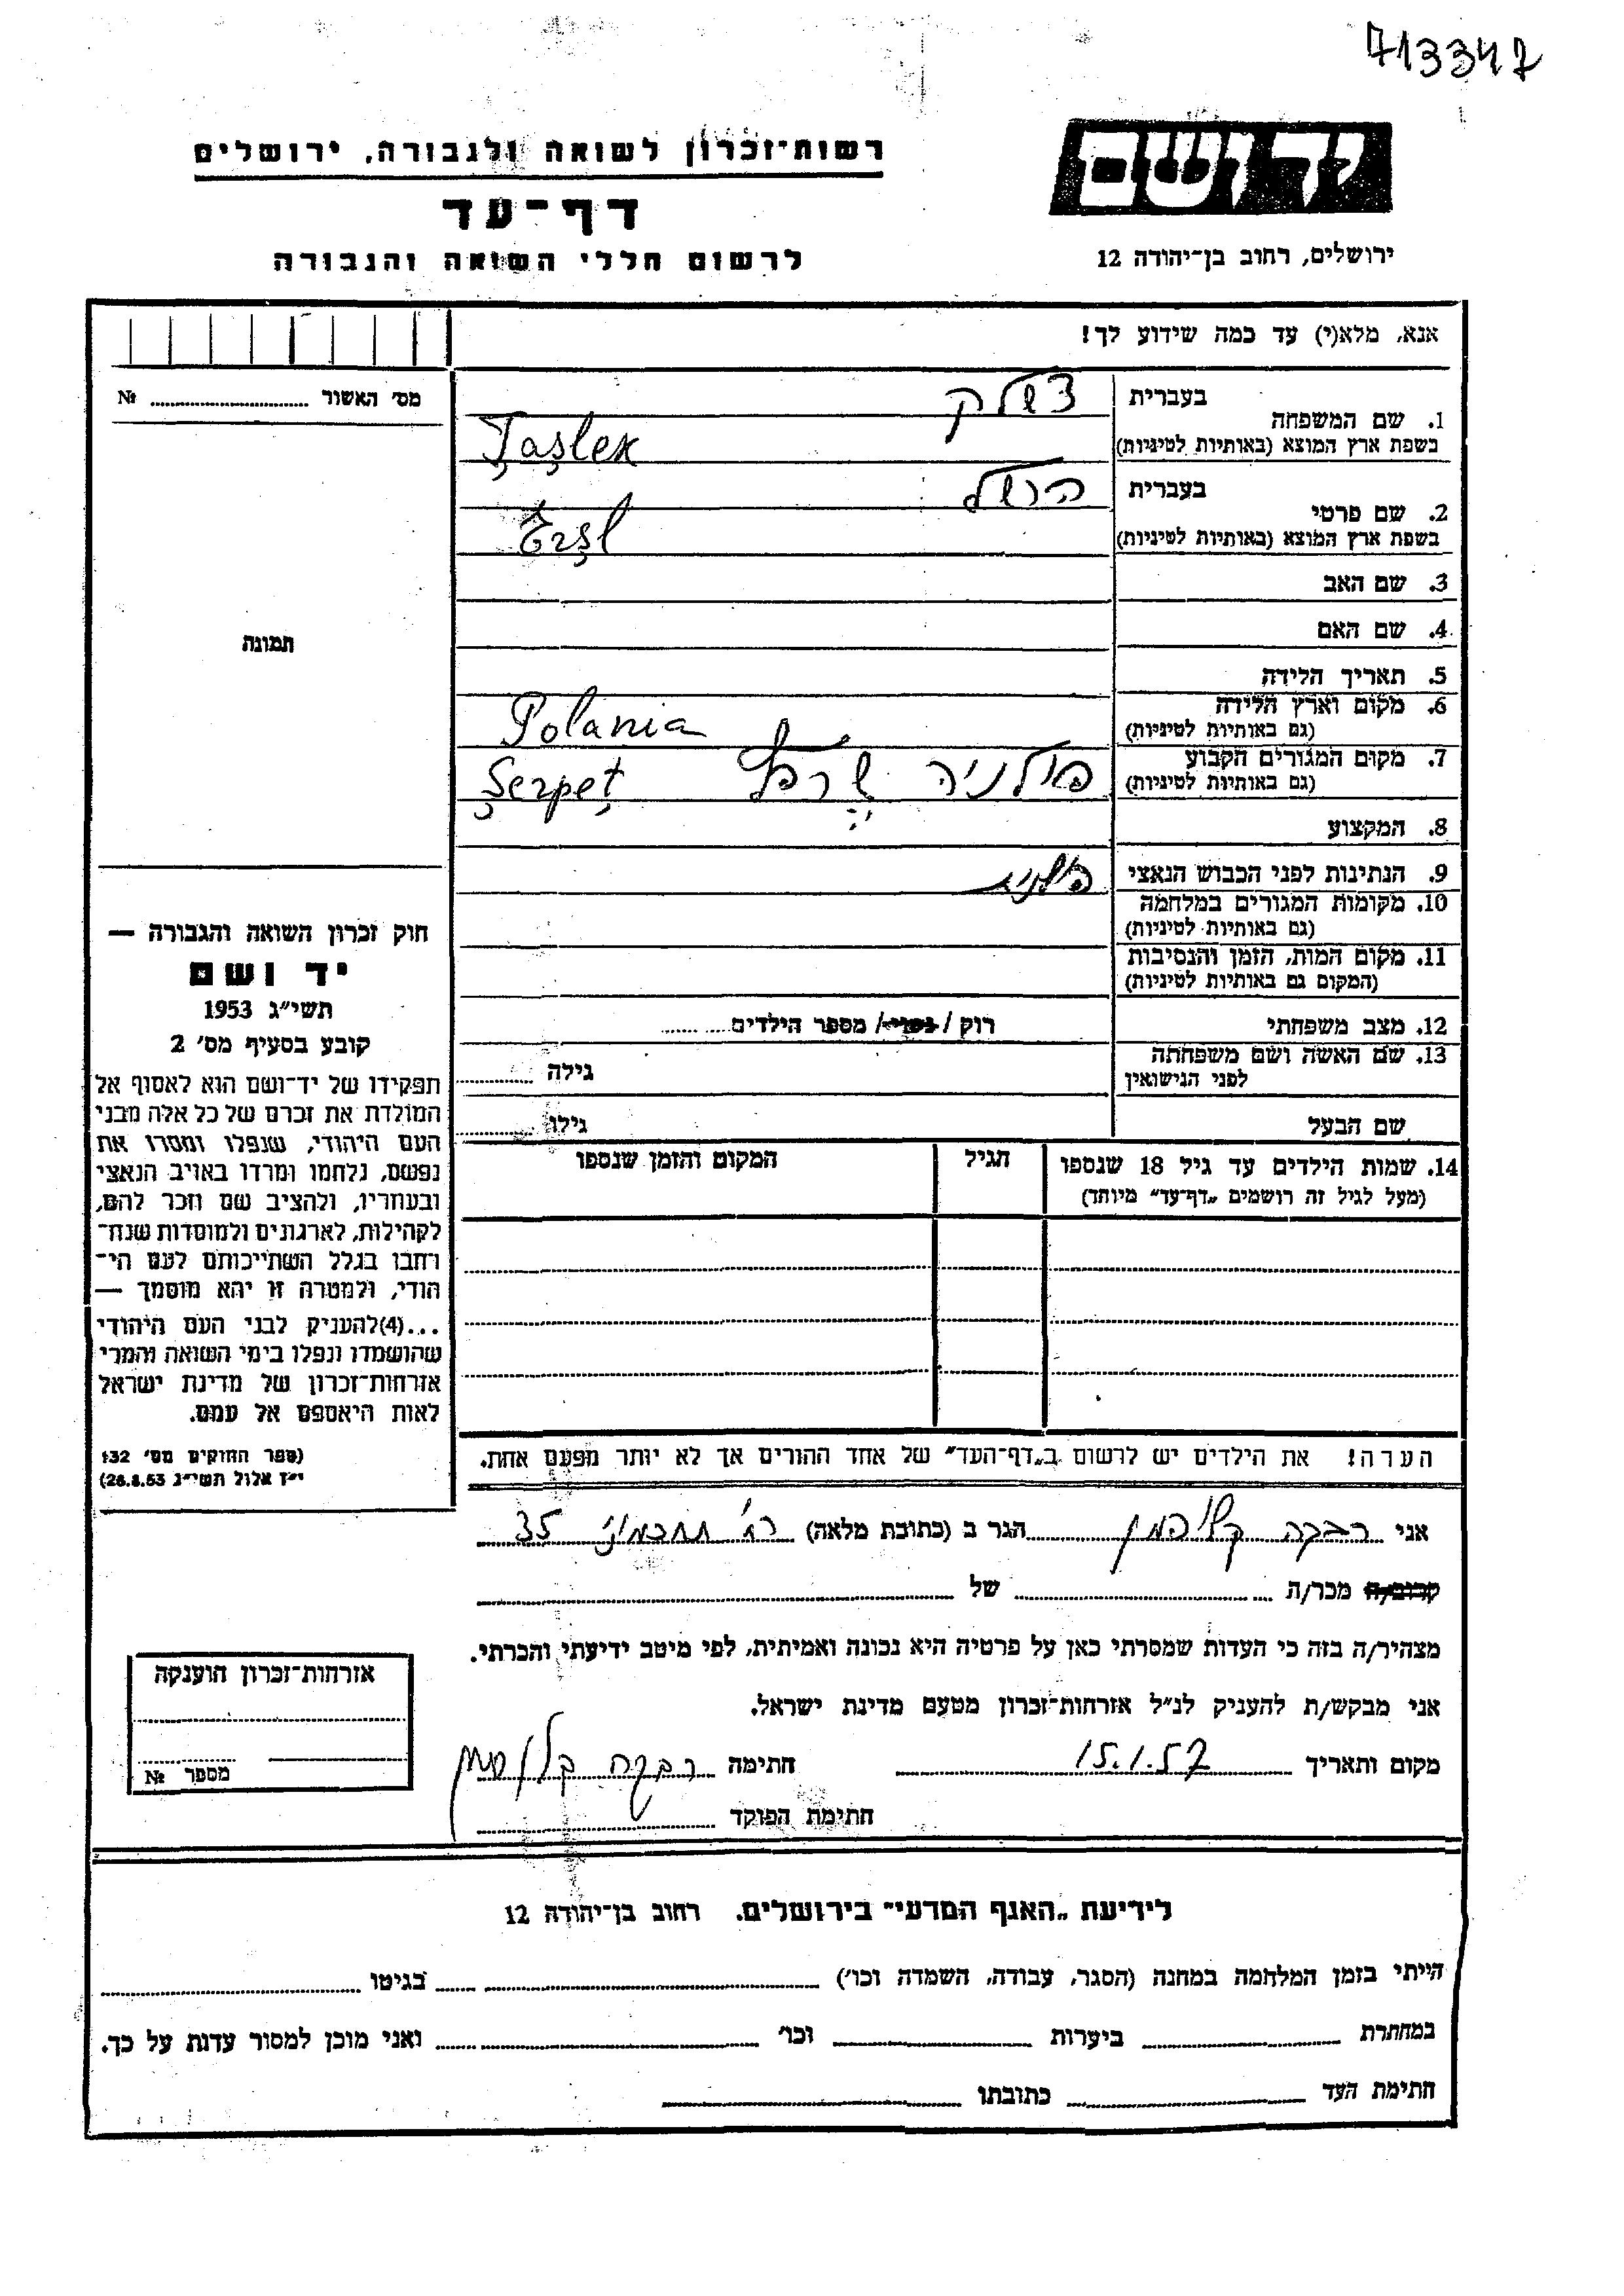 713347
יד ושם
ירושלים, רחוב בן־יהודה 12
רשות־זכרון לשואה ולגבורה, ירושלים
דף־עד
לרשום חללי השואה והגבורה
אנא, מלא(י) עד כמה שידוע לך!
1. שם המשפחה
בעברית צשלק
בשפת ארץ המוצא (באותיות לטיניות) Țașlek
2. שם פרטי
בעברית הרשל
בשפת ארץ המוצא (באותיות לטיניות) Erșl
3. שם האב
4. שם האם
5. תאריך הלידה
6. מקום וארץ הלידה
(גם באותיות לטיניות) Polania
7. מקום המגורים הקבוע פולניה
(גם באותיות לטיניות) Șerpeț
8. המקצוע
9. הנתינות לפני הכבוש הנאצי פולנית
10. מקומות המגורים במלחמה
(גם באותיות לטיניות)
11. מקום המות, הזמן והנסיבות
(המקום גם באותיות לטיניות)
12. מצב משפחתי רוק / נשוי / מספר הילדים
13. שם האשה ושם משפחתה
לפני הנישואין גילה
שם הבעל גילו
14. שמות הילדים עד גיל 18 שנספו הגיל המקום והזמן שנספו
(מעל לגיל זה רושמים „דף־עד” מיוחד)
הערה! את הילדים יש לרשום ב„דף־העד” של אחד ההורים אך לא יותר מפעם אחת.
מס׳ האשור №
תמונה
חוק זכרון השואה והגבורה —
יד ושם
תשי״ג 1953
קובע בסעיף מס׳ 2
תפקידו של יד־ושם הוא לאסוף אל
המולדת את זכרם של כל אלה מבני
העם היהודי, שנפלו ומסרו את
נפשם, נלחמו ומרדו באויב הנאצי
ובעוזריו, ולהציב שם וזכר להם,
לקהילות, לארגונים ולמוסדות שנח־
רבו בגלל השתייכותם לעם הי־
הודי, ולמטרה זו יהא מוסמך —
...(4)להעניק לבני העם היהודי
שהושמדו ונפלו בימי השואה והמרי
אזרחות־זכרון של מדינת ישראל
לאות היאספם אל עמם.
(ספר החוקים מס׳ 132
י״ז אלול תשי״ג 28.8.53)
אני רבקה קליפמן הגר ב (כתובת מלאה) רח׳ תחכמוני 35
קרוב/ה מכר/ה של
מצהיר/ה בזה כי העדות שמסרתי כאן על פרטיה היא נכונה ואמיתית, לפי מיטב ידיעתי והכרתי.
אני מבקש/ת להעניק לנ״ל אזרחות־זכרון מטעם מדינת ישראל.
מקום ותאריך 15.1.57 חתימה רבקה
חתימת הפוקד
אזרחות־זכרון הוענקה
מספר №
לידיעת „האגף המדעי” בירושלים. רחוב בן־יהודה 12
הייתי בזמן המלחמה במחנה (הסגר, עבודה, השמדה וכו׳) בגיטו
במחתרת ביערות וכו׳ ואני מוכן למסור עדות על כך.
חתימת העד כתובתו